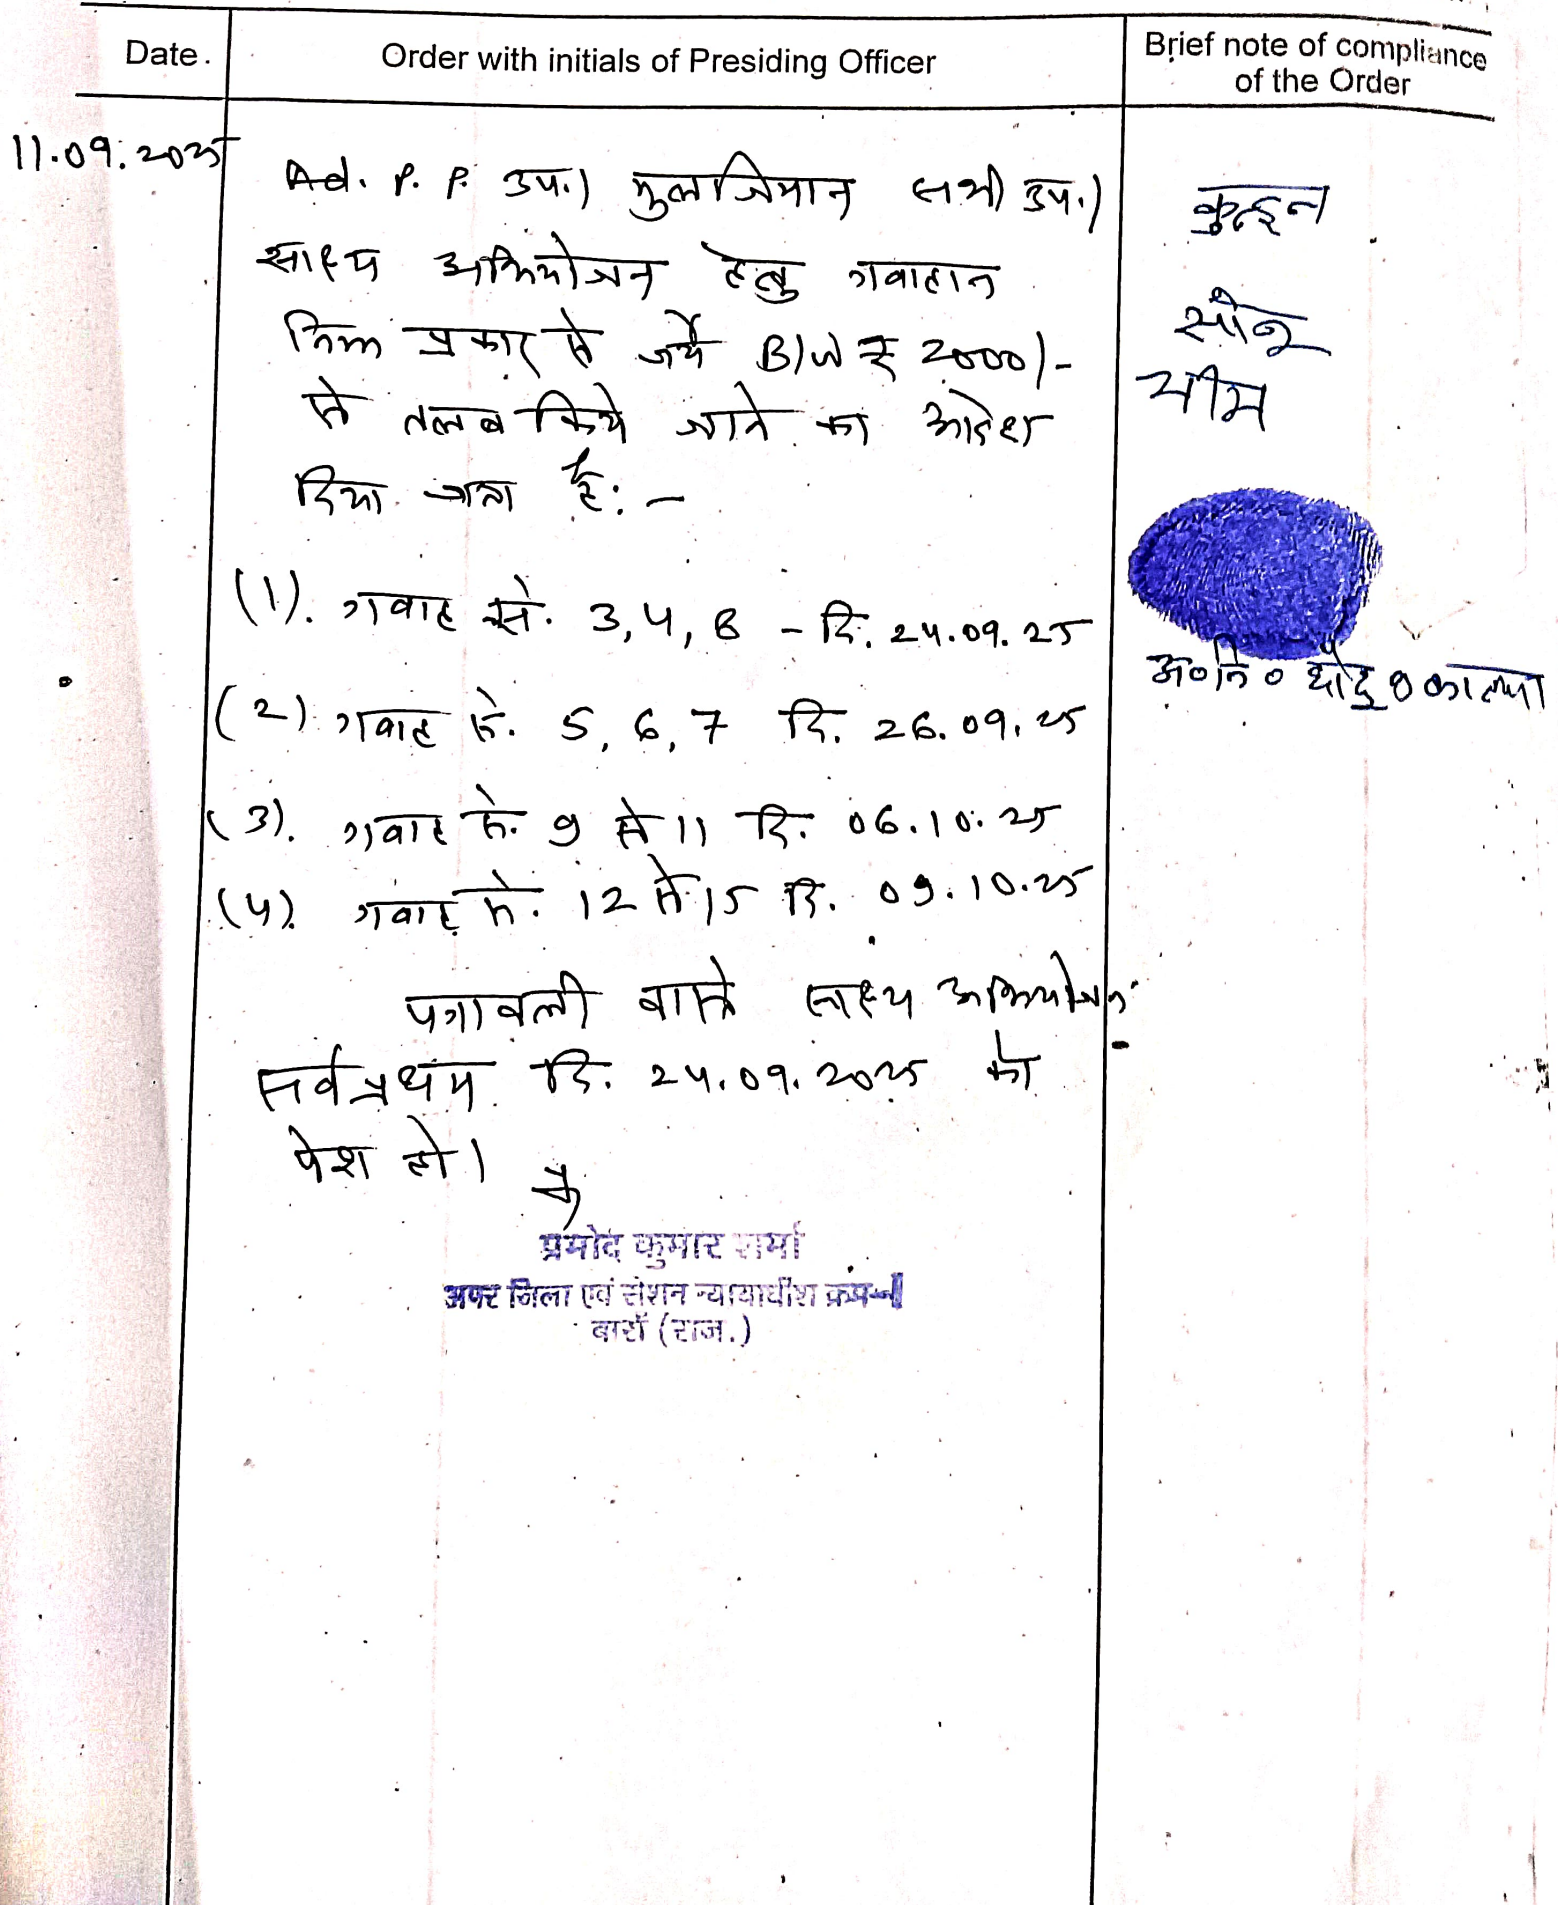 Date.
Order with initials of Presiding Officer
Brief note of compliance
of the Order
11.09.2025
Ad. P. P. उप.। मुलजिमान सभी उप.।
साक्ष्य अभियोजन हेतु गवाहान
निम्न प्रकार से जर्ये B/W ₹ 2000/-
से तलब किये जाने का आदेश
दिया जाता है:-
(1). गवाह सं. 3, 4, 8 - दि. 24.09.25
(2). गवाह सं. 5, 6, 7 दि. 26.09.25
(3). गवाह सं. 9 से 11 दि. 06.10.25
(4). गवाह सं. 12 से 15 दि. 09.10.25
पत्रावली वास्ते साक्ष्य अभियोजन
सर्वप्रथम दि. 24.09.2025 को
पेश हो।
प्रमोद कुमार शर्मा
अपर जिला एवं सेशन न्यायाधीश क्रम-1
बारॉं (राज.)
सोनू
भीम
अ०नि०